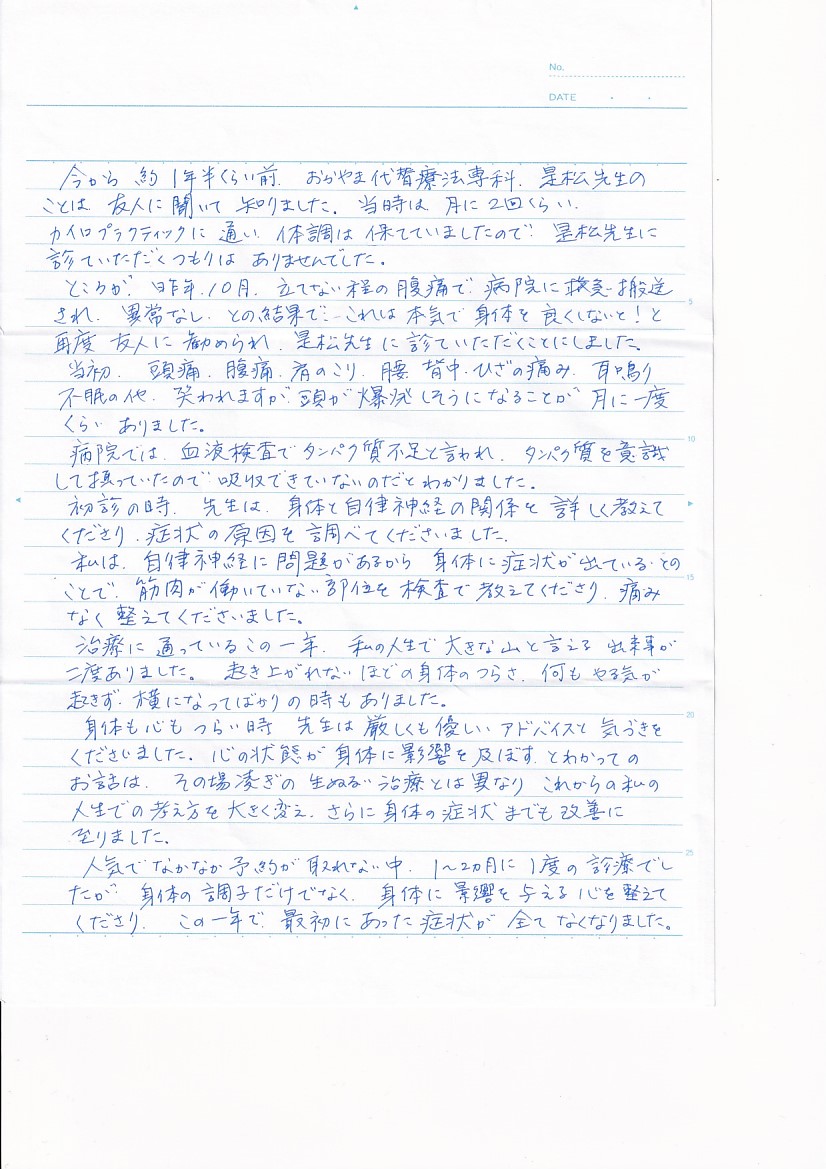 No.
DATE ・ ・
今から 約1年半くらい前、おかやま代替療法専科、是松先生の
ことは 友人に聞いて 知りました。当時は 月に2回くらい、
カイロプラクティックに 通い、体調は 保てていましたので、是松先生に
診ていただくつもりは ありませんでした。
ところが、昨年、10月、立てない程の腹痛で、病院に救急搬送
5
され、異常なし、との結果で…これは 本気で 身体を 良くしないと!と
再度 友人に 勧められ、是松先生に診ていただくことにしました。
当初、頭痛、腹痛、肩のこり、腰、背中、ひざの痛み、耳鳴り
不眠の他、笑われますが、頭が 爆発しそうになることが 月に一度
くらい ありました。
10
病院では、血液検査でタンパク質不足と言われ、タンパク質を意識
して摂っていたので、吸収できていないのだとわかりました。
初診の時、先生は、身体と自律神経の関係を 詳しく教えて
くださり、症状の原因を調べてくださいました。
私は、自律神経に問題があるから 身体に症状が出ている、との
15
ことで、筋肉が働いていない部位を 検査で教えてくださり、痛み
なく 整えてくださいました。
治療に 通っているこの一年、私の人生で 大きな山と言える 出来事が
二度ありました。起き上がれないほどの身体のつらさ、何も やる気が
起きず、横になってばかりの時もありました。
20
身体も心も つらい時 先生は 厳しくも優しい アドバイスと 気づきを
くださいました。心の状態が 身体に影響を及ぼす、とわかっての
お話は、その場凌ぎの 生ぬるい治療とは異なり これからの私の
人生での考え方を大きく変え、さらに身体の症状 までも改善に
至りました。
25
人気でなかなか予約が 取れない中、1〜2カ月に 1度の診療でし
たが、身体の調子だけでなく、身体に 影響を与える心を整えて
くださり、この一年で、最初にあった症状が 全て なくなりました。